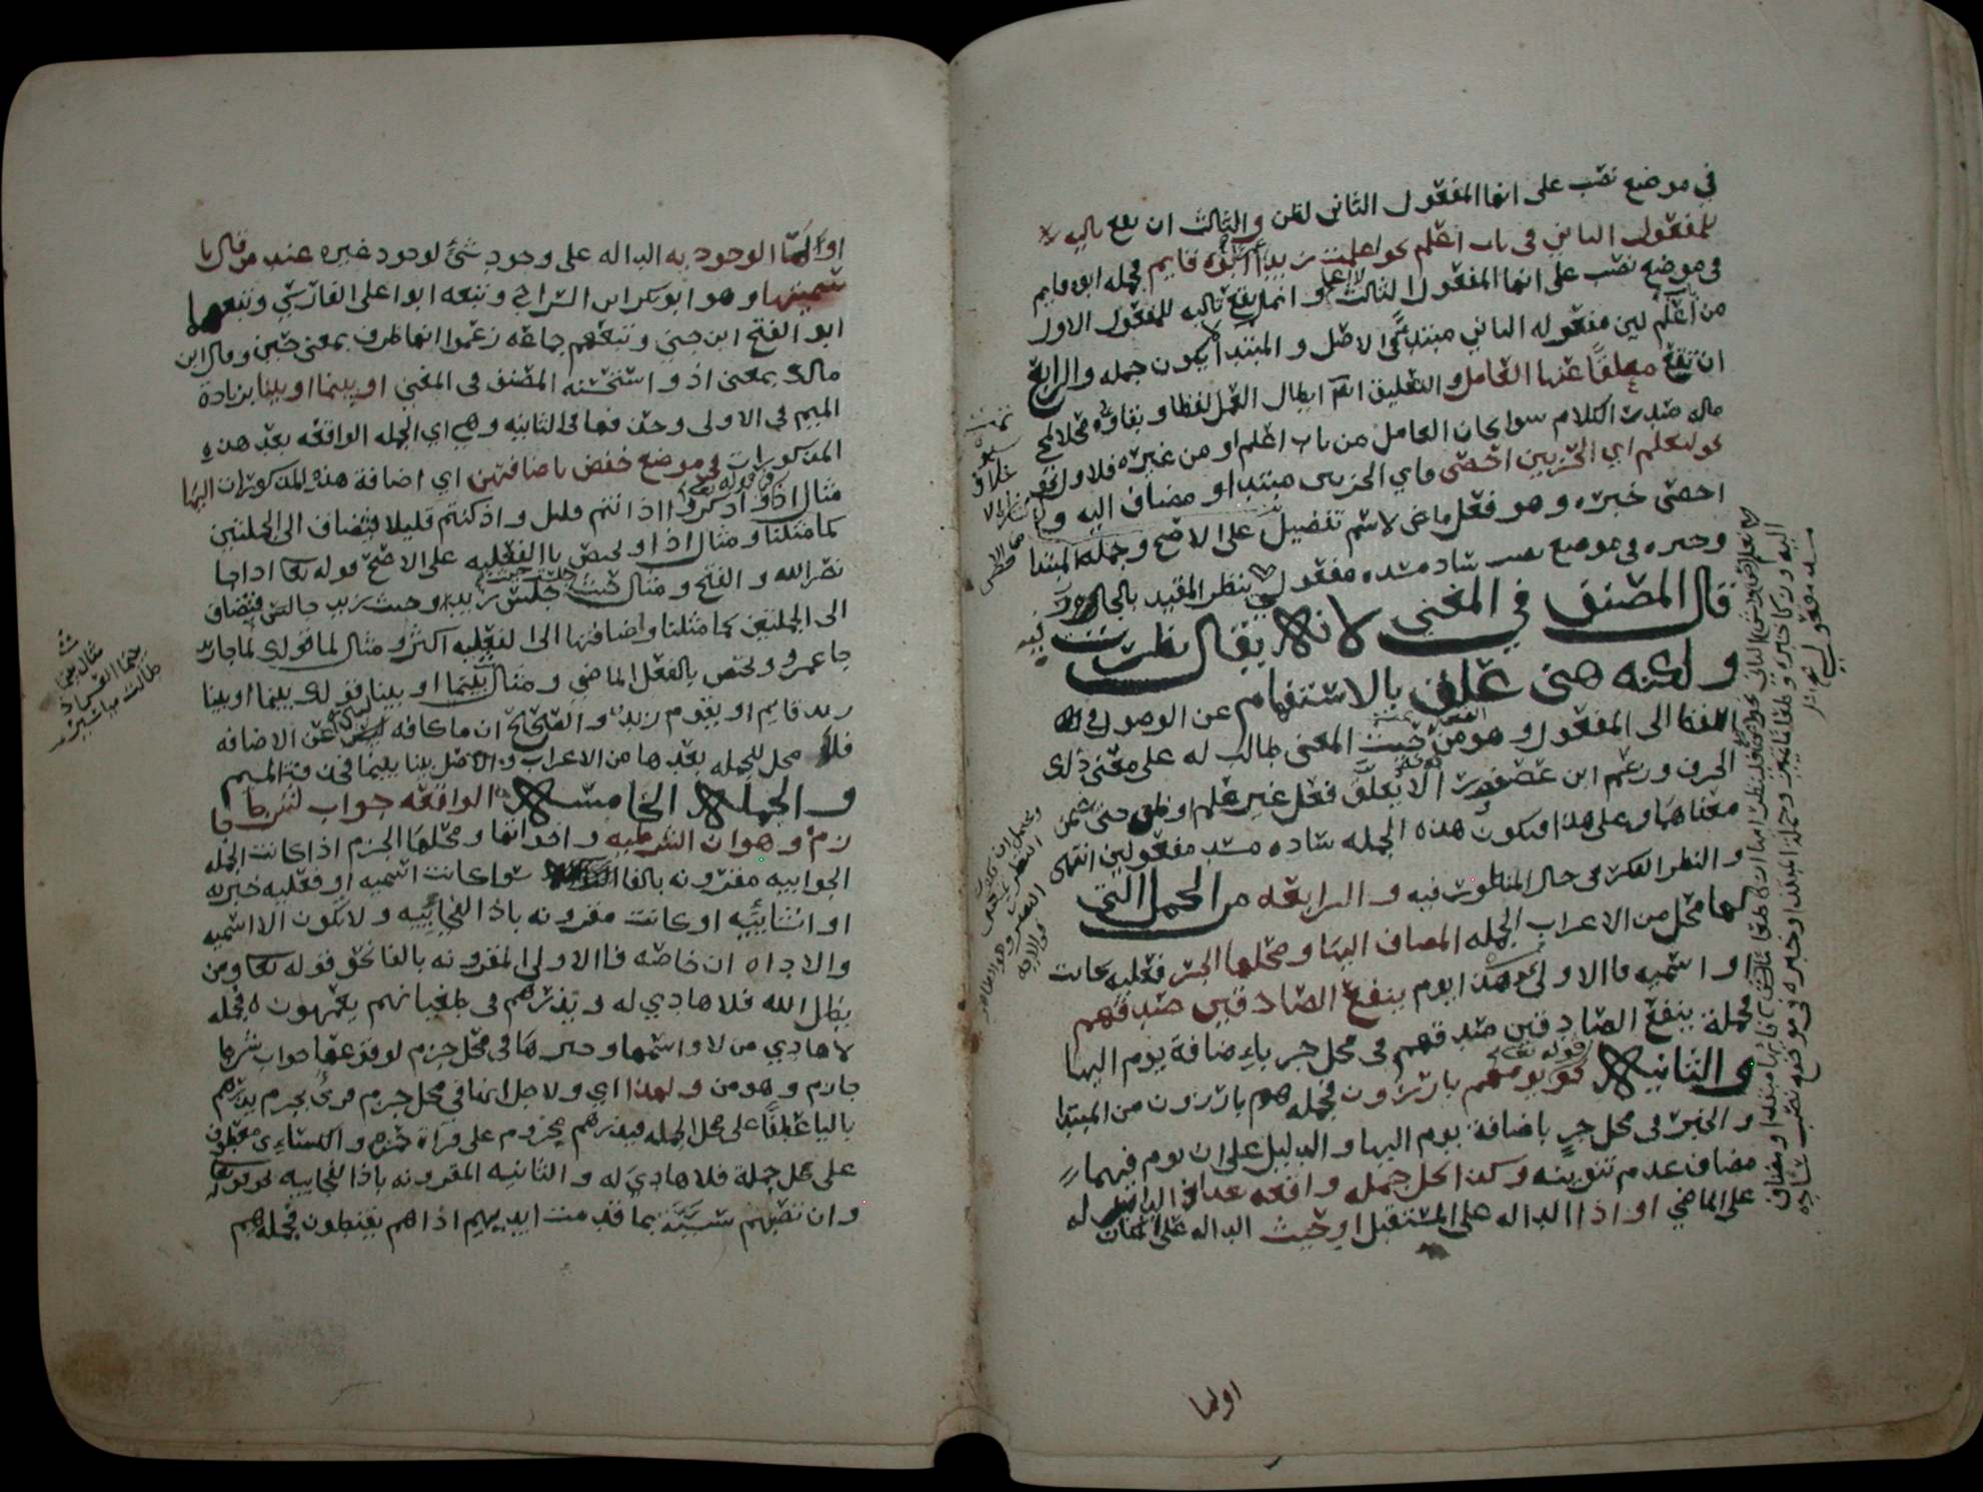 في موضع نصب على انها المفعول الثاني لظن والثالث ان تقع تاليه
للمفعول الثاني في باب اعلم نحو اعلمت زيدا عمرا ابوه قايم فجمله ابوه قايم
في موضع نصب على انها المفعول الثالث لاعلم وانما لم يقع تاليه للمفعول الاول
من باب اعلم لين مفعوله الثاني مبتدا في الاصل والمبتدا لا يكون جمله والرابع
ان تقع معلقا عنها العامل والتعليق ابطال العمل لفظا وبقاوه محلا لمجي
ماله صدر الكلام سوا كان العامل من باب اعلم او من غيره فلاول نحو
نحو لنعلم اي الحزبين احصى فاي الحزبين مبتدا ومضاف اليه و
احصى خبره وهو فعل ماض لا اسم تفضيل على الاصح وجمله المبتدا
وخبره في موضع نصب ساد مسد مفعولي
قال المصنف في المغني لانه لا يقال نظرت
ولكنه هنى علق بالاستفهام عن الوصول في
اللفظ الى المفعول وهو من حيث المعنى طالب له على معنى ذلك
الحرف وزعم ابن عصفور انه لا يعلق فعل غير علم او ظن حتى يضمن
معناها وعلى هذا فيكون هذه الجمله ساده مسد مفعولين انتهى
والنظر الفكر في حال المنظور فيه والرابعه من الجمل التي
لها محل من الاعراب الجمله المضاف اليها ومحلها الجر فعليه كانت
او اسميه فالاولى نحو هذا يوم ينفع الصادقين صدقهم
فجملة ينفع الصادقين صدقهم في محل جر باضافة يوم اليها
والثانيه نحو قوله تعالى يومهم بارزون فجمله هم بارزون من المبتدا
والخبر في محل جر باضافة يوم اليها والدليل على ان يوم فيهما
مضاف عدم تنوينه وكذا كل جمله واقعه بعد اذ الداله
على الماضي او اذا الداله على المستقبل او حيث الداله على المكان
اولما
او لما الوجوديه الداله على وجود شي لوجود غيره عند من قال با
سميتها وهو ابو بكر ابن السراج وتبعه ابو اعلى الفارسي وتبعهما
ابو الفتح ابن جني وتبعهم جماعه زعموا انها ظرف بمعنى حين وقال ابن
مالك بمعنى اذ واستحسنه المصنف في المغني او بينما او بينا بزيادة
الميم في الاولى وحذفها في الثانيه وهي اي الجمله الواقعه بعد هذه
المذكورات في موضع خفض باضافتهن اي اضافة هذه المذكورات اليها
مثال اذ قوله تعالى واذكروا اذ انتم قليل واذ كنتم قليلا فتضاف الى الجملتين
كما مثلنا ومثال اذا وتختص بالفعليه على الاصح قوله تعالى اذا جا
نصر الله والفتح ومثال حيث جلست حيث جلس زيد او حيث زيد جالس فتضاف
الى الجملتين كما مثلنا واضافتها الى الفعليه اكثر ومثال لما قولك لما جا زيد
جا عمرو وتختص بالفعل الماضي ومثال بينما او بينا قولك بينما او بينا
زيد قايم او يقوم زيد والصحيح ان ما كافه لبين عن الاضافه
فلا محل للجمله بعدها من الاعراب والاصل بينا بينما فحذفة الميم
والجمله الخامسه الواقعه جواب لشرط جا
زم وهو ان الشرطيه واخواتها ومحلها الجزم اذا كانت الجمله
الجوابيه مقرونه بالفا سوا كانت اسميه او فعليه خبريه
او انشاييه او كانت مقرونه باذا الفجاييه ولا تكون الا اسميه
والاداه ان خاصه فالاولى المقرونه بالفا نحو قوله تعالى ومن
يضلل الله فلا هادي له ويذرهم في طغيانهم يعمهون فجمله
لا هادي من لا واسمها وخبرها في محل جزم لوقوعها جواب شرط
جازم وهو من ولهذا اي ولاجل انها في محل جزم قرئ بجزم يذرهم
باليا عطفا على محل الجمله فيذرهم مجزوم على قراة حمزه والكسائي معطوف
على محل جملة فلا هادي له والثانيه المقرونه باذا الفجاييه نحو قوله تعالى
وان تصبهم سيية بما قدمت ايديهم اذا هم يقنطون فجمله هم
مثال بينما